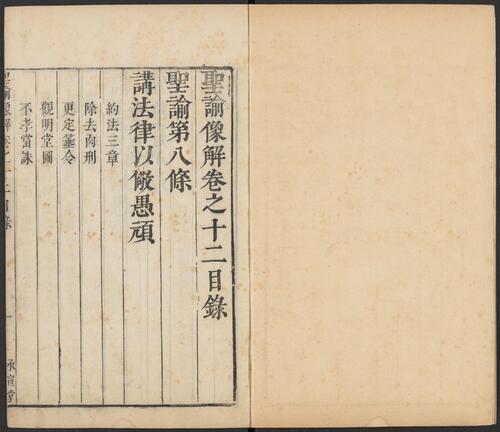 聖諭像解卷之十二目錄
聖諭第八條
講法律以儆愚頑
約法三章
除去肉刑
更定箠令
觀明堂圖
不孝當誅
聖諭像解卷之十二目錄
一
承宣堂